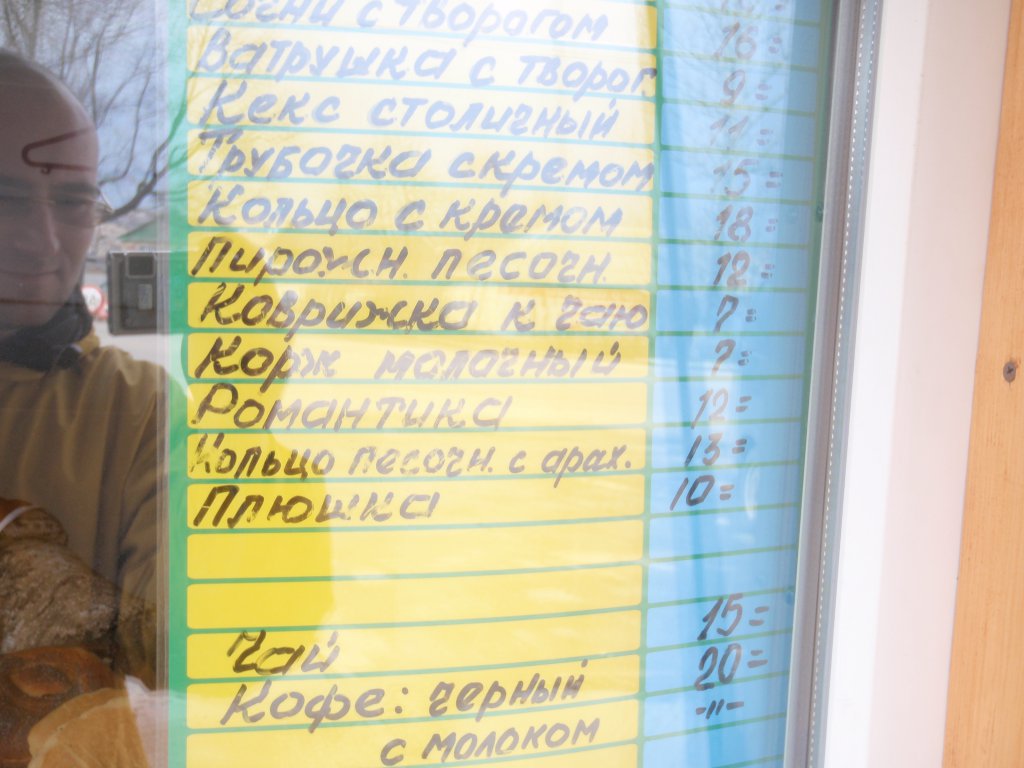 Сочни с творогом 16=
Ватрушка с творог. 9=
Кекс столичный 11=
Трубочка с кремом 15=
Кольцо с кремом 18=
Пирожн. песочн. 12=
Коврижка к чаю 7=
Корж молочный 7=
Романтика 12=
Кольцо песочн. с арах. 13=
Плюшка 10=
Чай 15=
Кофе: черный 20=
с молоком -"-